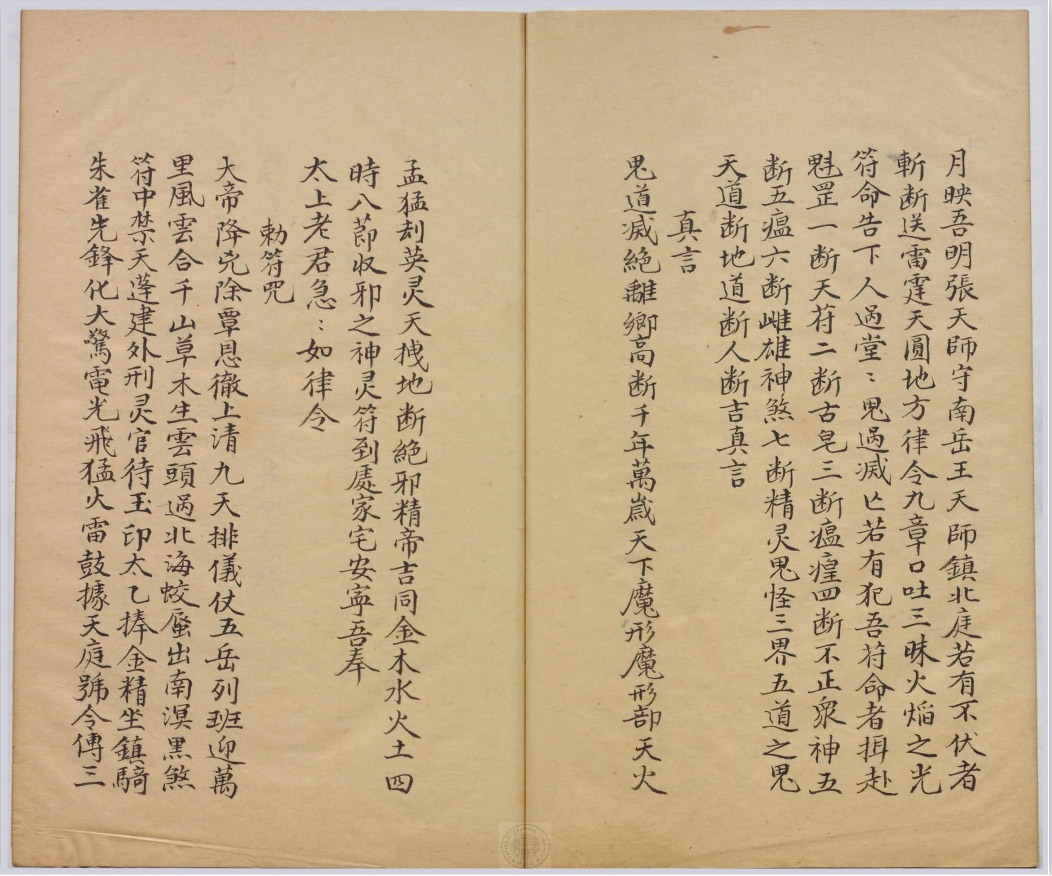 月映吾明張天師守南岳王天師鎮北庭若有不伏者
斬断送雷霆天圓地方律令九章口吐三昧火焰之光
符命告下人過堂〻鬼過滅亡若有犯吾苻命者揖赴
魁罡一断天苻二断古皂三断瘟㾮四断不正衆神五
断五瘟六断雌雄神煞七断精灵鬼怪三界五道之鬼
天道断地道断人断吉真言
真言
鬼道滅絕離鄉高断千年萬歲天下魔形魔形部天火
孟猛刦英灵天㧞地断絕邪精帝吉同金木水火土四
時八莭收邪之神灵符到處家宅安寧吾奉
太上老君急〻如律令
勅符咒
大帝降兇除覃恩徹上清九天排儀仗五岳列班迎萬
里風雲合千山草木生雲頭過北海蛟蜃出南溟黑煞
符中禁天蓬建外刑灵官待玉印太乙捧金精坐鎮騎
朱雀先鋒化大驚電光飛猛火雷鼓據天庭號令傳三